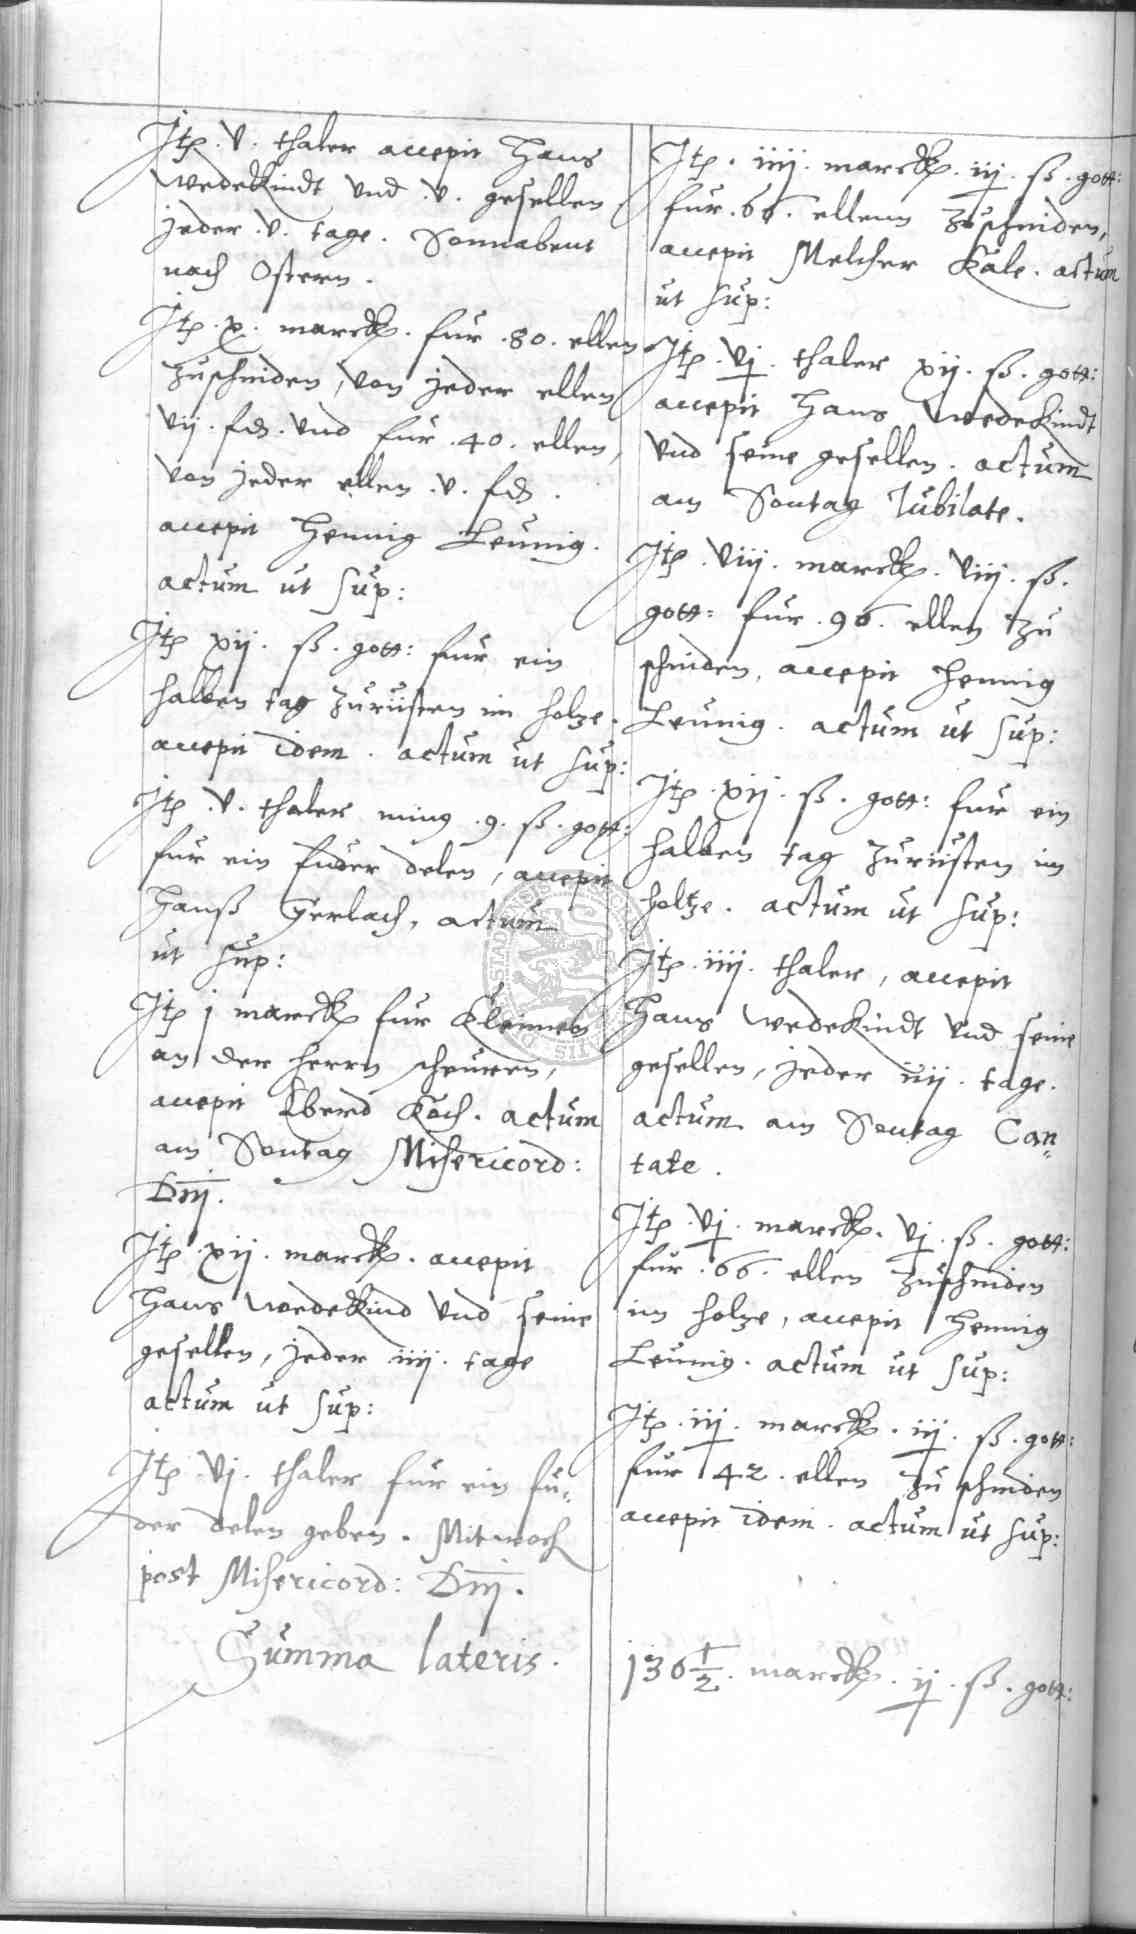 Itp. v. thaler accepit Hans
Wedekindt vnd .v. gesellen
jeder .v. tage. Sonnabent
nach Ostern.
Itp. x. marck. fur .80. ellen
zuschniden, von jeder ellen
vij. fd. vnd fur .40. ellen,
von jeder ellen .v. fd.
accepit Hennig Leunig.
actum ut sup:
Itp xij. ß. gott: fur ein
halben tag zurüsten im holze.
accepit idem. actum ut sup:
Itp .v. thaler ming .9. ß. gott:
fur ein fuder delen, accepit
Hanß Gerlach, actum
ut sup:
Itp j marck fur Kleimen
an der herrn scheuren,
accepit Eberd Koch. actum
am Sontag Misericord:
Dnj.
Itp xij. marck. accepit
Hans Wedekind vnd seine
gesellen, jeder iiij. tage
actum ut sup:
Itp .vj. thaler fur ein fu-
der delen geben. Mitwoch
post Misericord: Dnj.
Summa lateris.
Itp. iiij. marck. iij. ß. gott:
fur .66. ellenn zuschniden,
accepit Melcher Kale. actum
ut sup:
Itp .vj. thaler xij. ß. gott:
accepit Hans Wedekindt
vnd seine gesellen. actum
am Sontag Iubilate.
Itp .viij. marck. viij. ß.
gott: fur .96. ellen zu
schniden, accepit Hennig
Leunig. actum ut sup:
Itp .xij. ß. gott: fur ein
halben tag zurüsten im
holtze. actum ut sup:
Itp .iiij. thaler, accepit
Hans Wedekindt vnd seine
gesellen, jeder iiij. tage.
actum am Sontag Can-
tate.
Itp .vj. marck. vj. ß. gott:
fur .66. ellen zuschniden
im holze, accepit Hennig
Leunig. actum ut sup:
Itp .iij. marck. iij. ß. gott:
fur 42. ellen zu schniden
accepit idem. actum ut sup:
136 1/2. marck. ij. ß. gott: